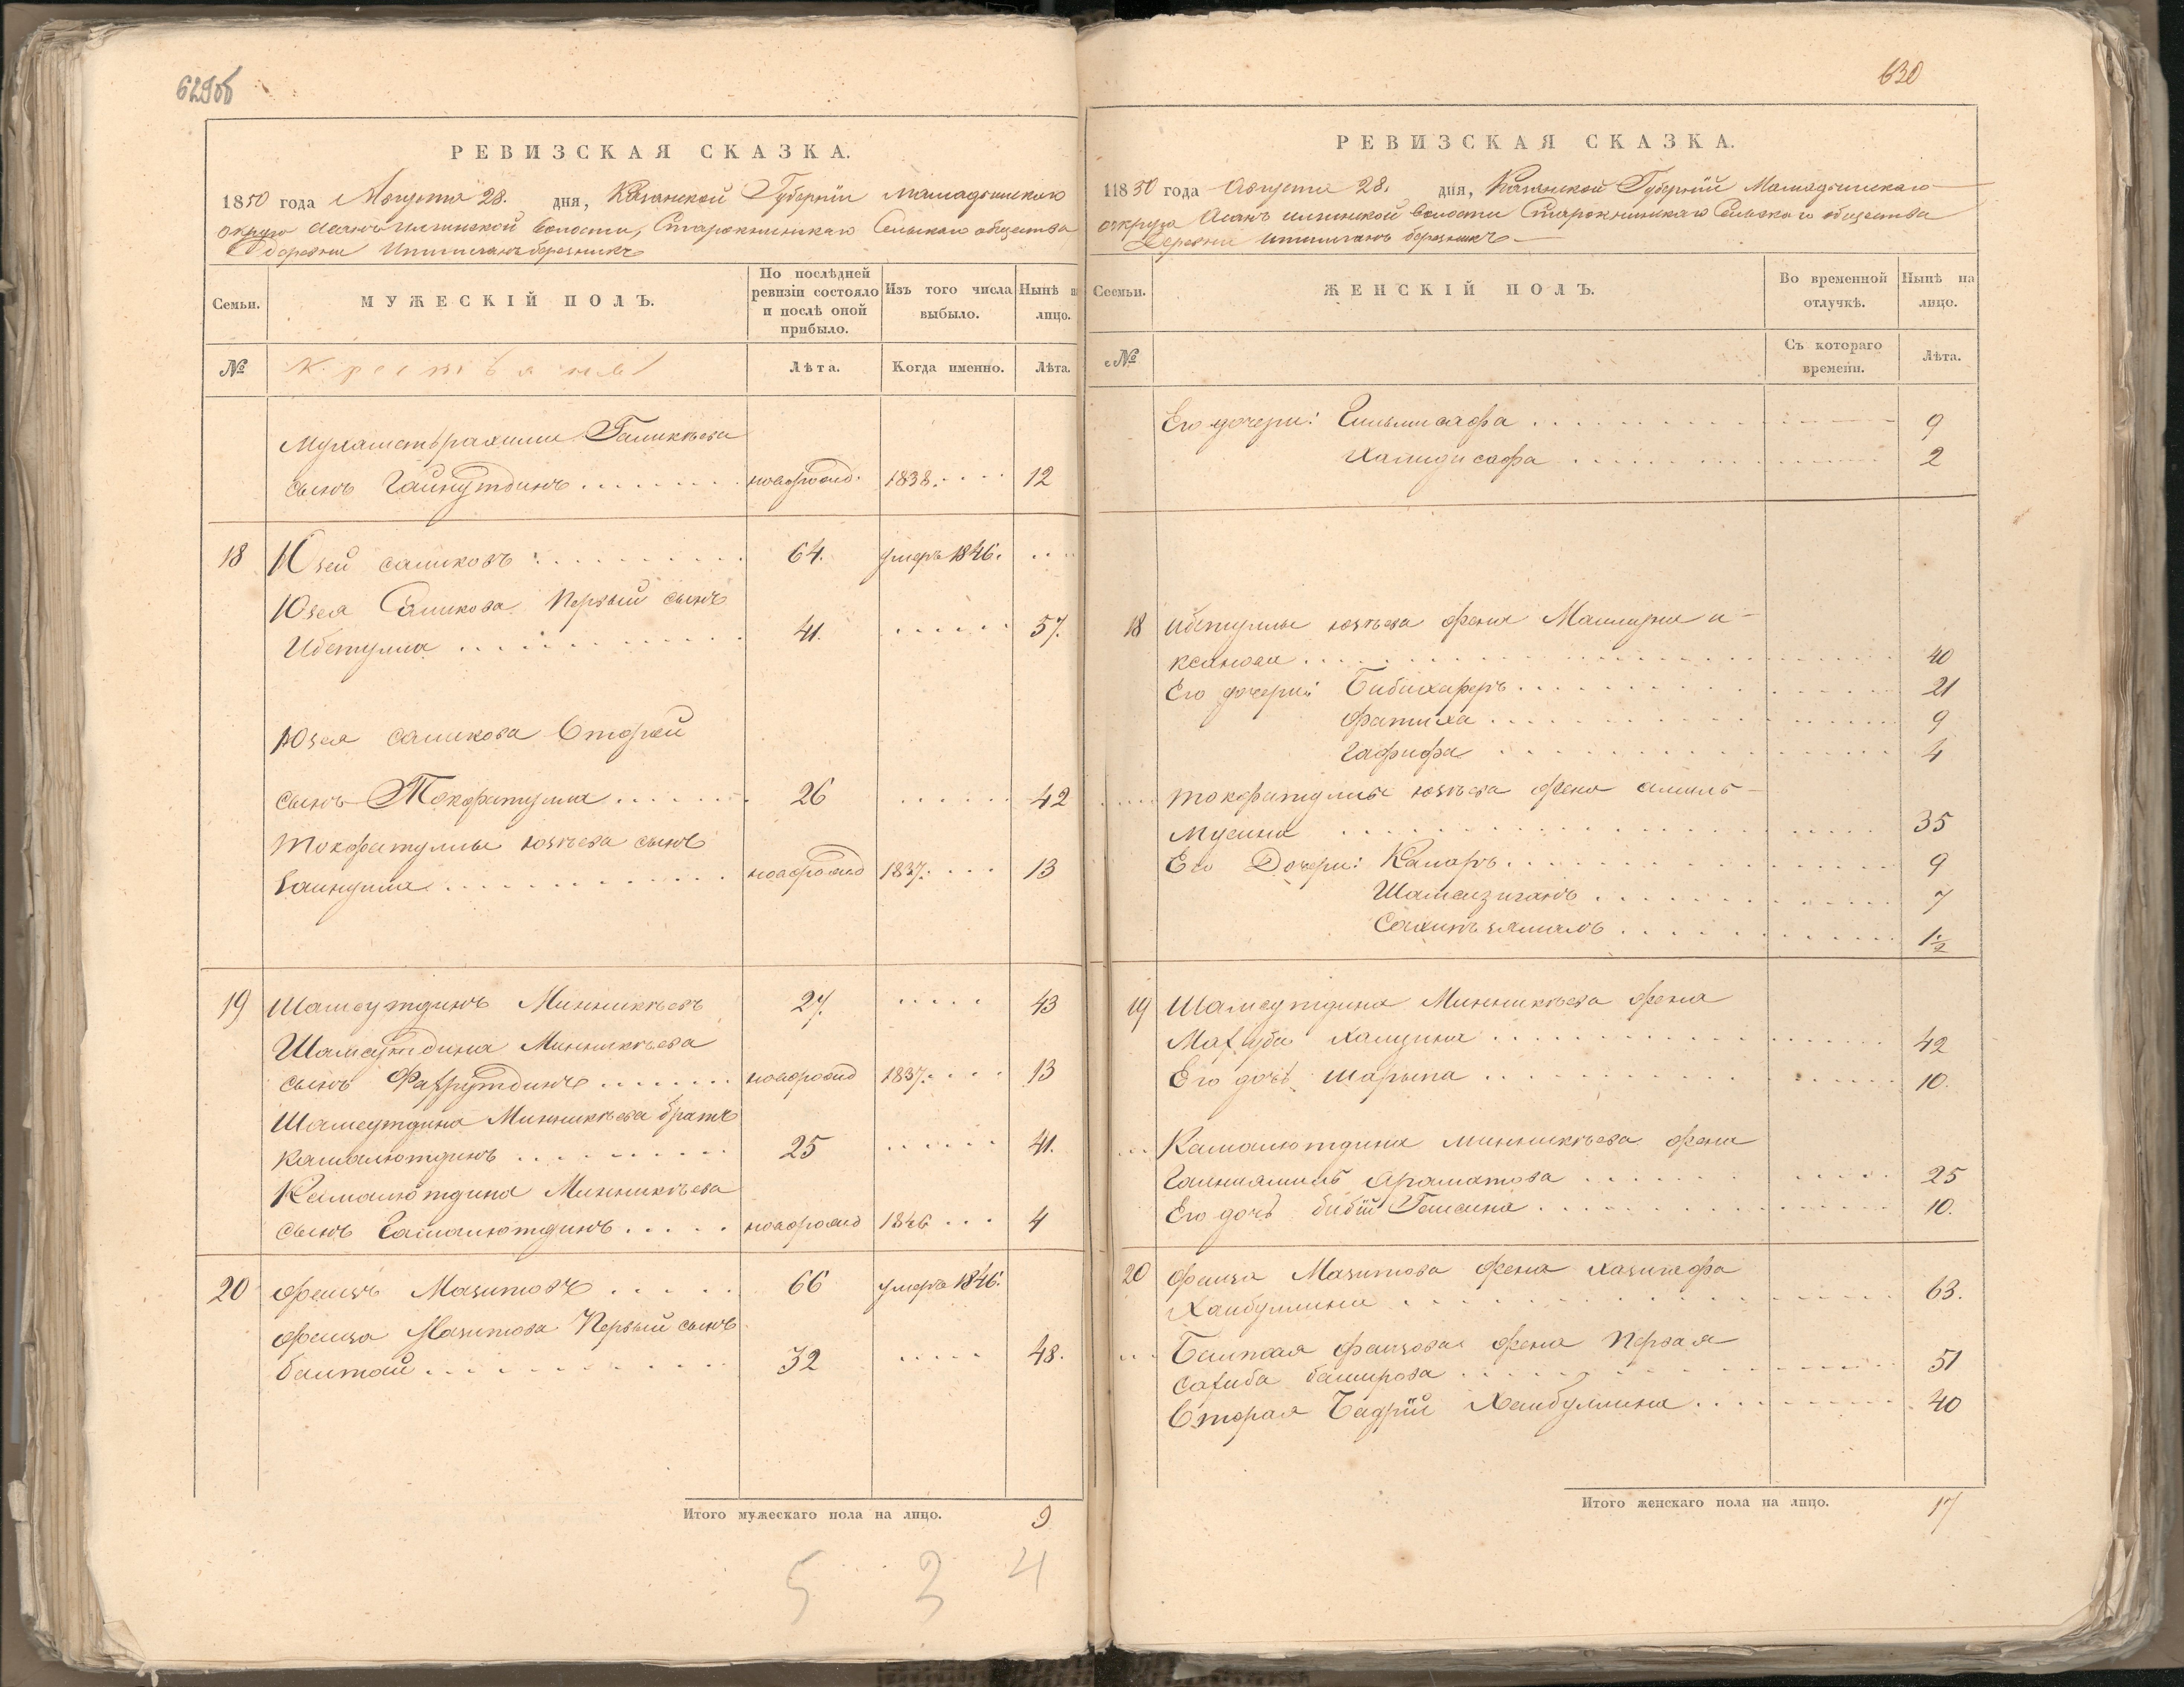 629об
РЕВИЗСКАЯ СКАЗКА.
1850 года Августа 28. дня, Казанской Губерніи Мамадышскаго
округа Асанъ илгинской волости, Старокнинскаго Сельскаго общества
деревни березникъ
Семьи.
МУЖЕСКІЙ ПОЛЪ.
По послѣдней
ревизіи состояло
и послѣ оной
прибыло.
Изъ того числа
выбыло.
Нынѣ н
лицо.
№
Крестьяне
Лѣта.
Когда именно.
Лѣта.
Мухаметърахима Галикѣева
сынъ Гайнутдинъ . . . . . . . . новорожд. 1838. . . . . 12
18 Юзей саликовъ . . . . . . . . . 64. умеръ 1846. . . .
Юзея Саликова Первый сынъ
Ибетулла . . . . . . . . . . . 41. . . . . . . 57.
Юзея саликова Второй
сынъ Токфатулла . . . . . . . 26 . . . . . . 42
Токфатуллы юзѣева сынъ
Гайнулла . . . . . . . . . . . . новорожд 1837. . . . . 13
19 Шамсутдинъ Минникѣевъ 27. . . . . . 43
Шамсутдина Минникѣева
сынъ Фахрутдинъ . . . . . . . новорожд 1837. . . . . 13
Шамсутдина Минникѣева братъ
Камалютдинъ . . . . . . . . . . 25 . . . . . . 41.
Камалютдина Минникѣева
сынъ Гамалютдинъ . . . . . новорожд 1846 . . . 4
20 Фаизъ Мазитовъ . . . . . 66 умеръ 1846.
Фаиза Мазитова Первый сынъ
Баитай . . . . . . . . . . . . 32 . . . . . 48.
Итого мужескаго пола на лицо. 9
5 3 4
630
РЕВИЗСКАЯ СКАЗКА.
11850 года Августа 28. дня, Казанской Губерніи Мамадышскаго
округа Асанъ илгинской волости Старокнинскаго Сельскаго общества
Деревни березникъ
Ссемьи.
ЖЕНСКІЙ ПОЛЪ.
Во временной
отлучкѣ.
Нынѣ на
лицо.
с №
Съ котораго
времени.
Лѣта.
Его дочери: Гильмисафа . . . . . . . . . 9
Хамидисафа . . . . . . . . . 2
18 Ибетуллы юзѣева жена
. . . . . . . . . . . . 40
Его дочери: Бибихаферъ . . . . . . . . . 21
Фатиха . . . . . . . . . 9
Гафифа . . . . . . . . . 4
. . . . Токфатуллы юзѣева жена
Мусина . . . . . . . . . 35
Его Дочери: Камаръ . . . . . . . . . 9
Шамсизиганъ . . . . . . . . . 7
. . . . . . . . . 1½
19 Шамсутдина Минникѣева жена
Махуба Хамзина . . . . . . . . . 42
Его дочь Шарыпа . . . . . . . . . 10.
. . . Камалютдина Минникѣева жена
. . . . . . . . . 25
Его дочь биби Гайсина . . . . . . . . . 10.
20 Фаиза Мазитова жена
Хайбуллина . . . . . . . . . 63.
. . . Баитая Фаизова жена Первая
Сахиба баширова . . . . . . . . . 51
Вторая Бадрій Хайбуллина . . . . . . . . . 40
Итого женскаго пола на лицо. 17